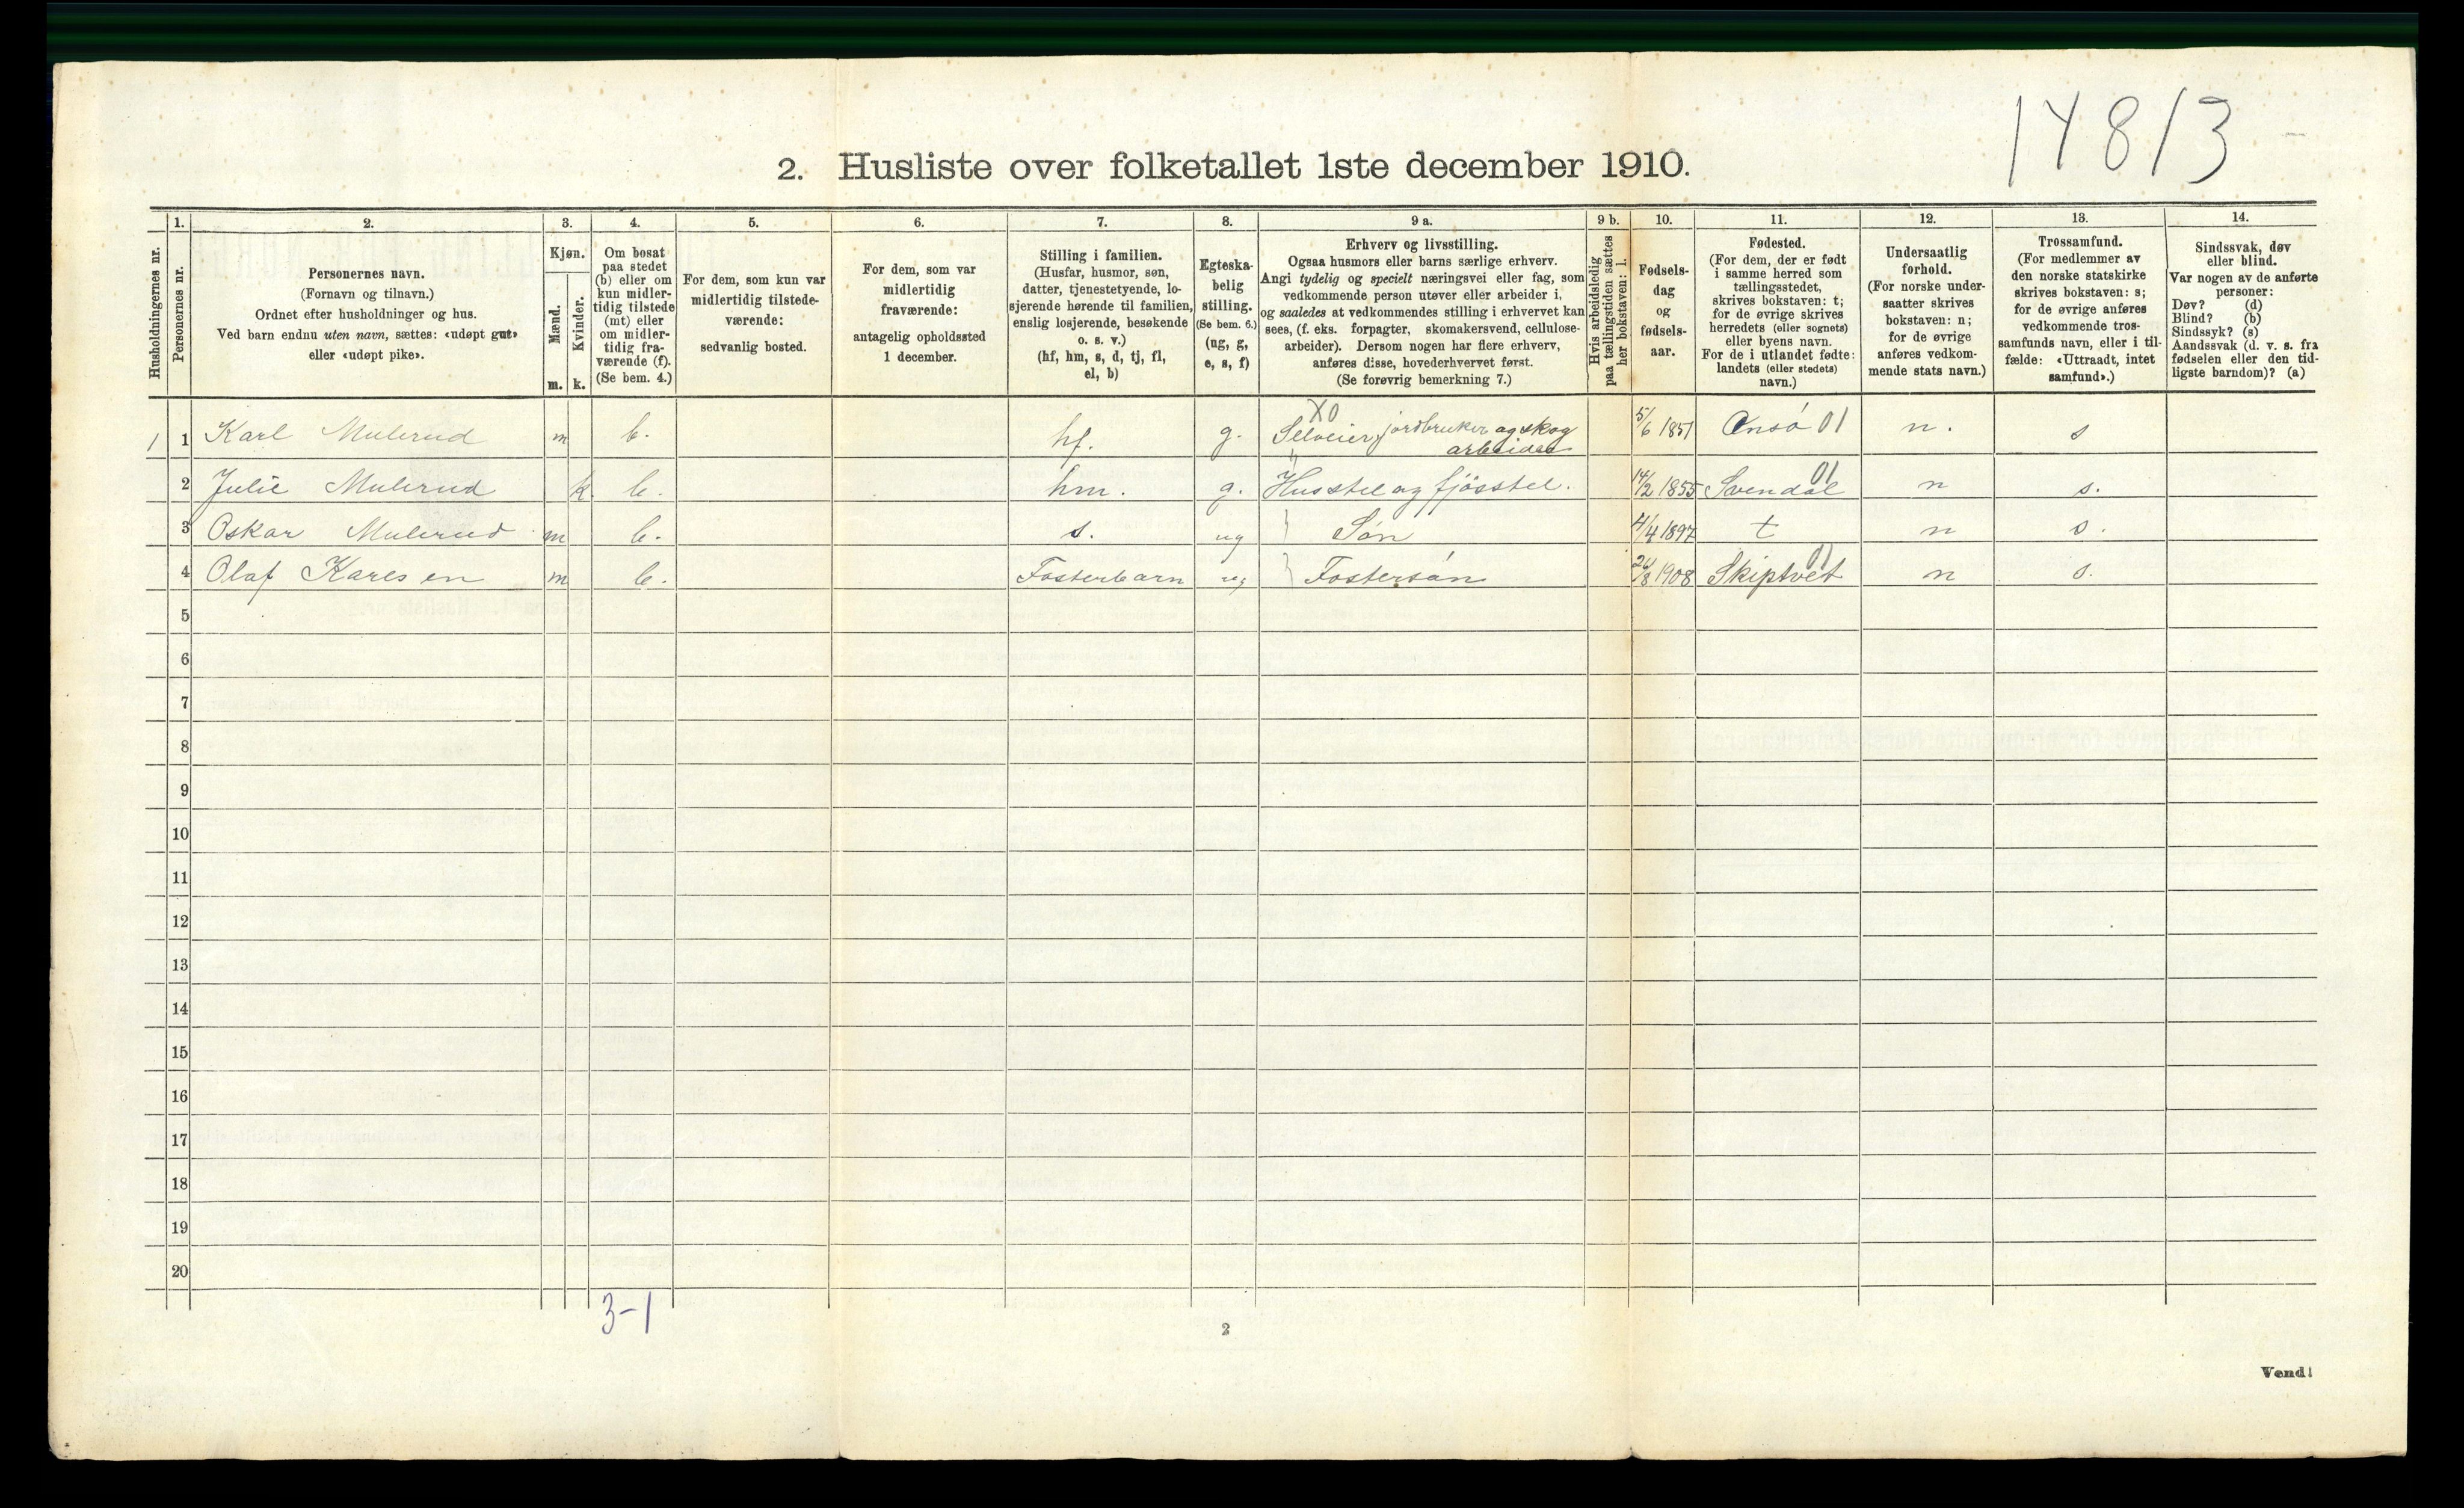 14813
2. Husliste over folketallet 1ste december 1910.
Husholdningernes nr.
1.
Personernes nr.
2.
Personernes navn.
(Fornavn og tilnavn.)
Ordnet efter husholdninger og hus.
Ved barn endnu uten navn, sættes: «udøpt gut»
eller «udøpt pike».
3.
Kjøn.
Mænd.
m.
Kvinder.
k.
4.
Om bosat
paa stedet
(b) eller om
kun midler-
tidig tilstede
(mt) eller
om midler-
tidig fra-
værende (f).
(Se bem. 4.)
5.
For dem, som kun var
midlertidig tilstede-
værende:
sedvanlig bosted.
6.
For dem, som var
midlertidig
fraværende:
antagelig opholdssted
1 december.
7.
Stilling i familien.
(Husfar, husmor, søn,
datter, tjenestetyende, lo-
sjerende hørende til familien,
enslig losjerende, besøkende
o. s. v.)
(hf, hm, s, d, tj, fl,
el, b)
8.
Egteska-
belig
stilling.
(Se bem. 6.)
(ug, g,
e, s, f)
9 a.
Erhverv og livsstilling.
Ogsaa husmors eller barns særlige erhverv.
Angi tydelig og specielt næringsvei eller fag, som
vedkommende person utøver eller arbeider i,
og saaledes at vedkommendes stilling i erhvervet kan
sees, (f. eks. forpagter, skomakersvend, cellulose-
arbeider). Dersom nogen har flere erhverv,
anføres disse, hovederhvervet først.
(Se forøvrig bemerkning 7.)
9 b.
Hvis arbeidsledig
paa tællingstiden sættes
her bokstaven: l.
10.
Fødsels-
dag
og
fødsels-
aar.
11.
Fødested.
(For dem, der er født
i samme herred som
tællingsstedet,
skrives bokstaven: t;
for de øvrige skrives
herredets (eller sognets)
eller byens navn.
For de i utlandet fødte:
landets (eller stedets)
navn.)
12.
Undersaatlig
forhold.
(For norske under-
saatter skrives
bokstaven: n;
for de øvrige
anføres vedkom-
mende stats navn.)
13.
Trossamfund.
(For medlemmer av
den norske statskirke
skrives bokstaven: s;
for de øvrige anføres
vedkommende tros-
samfunds navn, eller i til-
fælde: «Uttraadt, intet
samfund».)
14.
Sindssvak, døv
eller blind.
Var nogen av de anførte
personer:
Døv? (d)
Blind? (b)
Sindssyk? (s)
Aandssvak (d. v. s. fra
fødselen eller den tid-
ligste barndom)? (a)
1 1 Karl Mulerud m b. hf. g. X0 Selveier, jordbruker og skog arbeider 5/6 1851 Onsö 01 n. s
2 Julie Mulerud k. b. hm. g. Husstel og fjösstel. 14/2 1855 Svendal 01 n s.
3 Oskar Mulerud m b. s. ug Sön 4/4 1897 t n s.
4 Olaf Karlsen m b. Fosterbarn ug Fostersön /8 1908 Skiptvet 01 n s.
5
6
7
8
9
10
11
12
13
14
15
16
17
18
19
20
3-1
2
Vend!